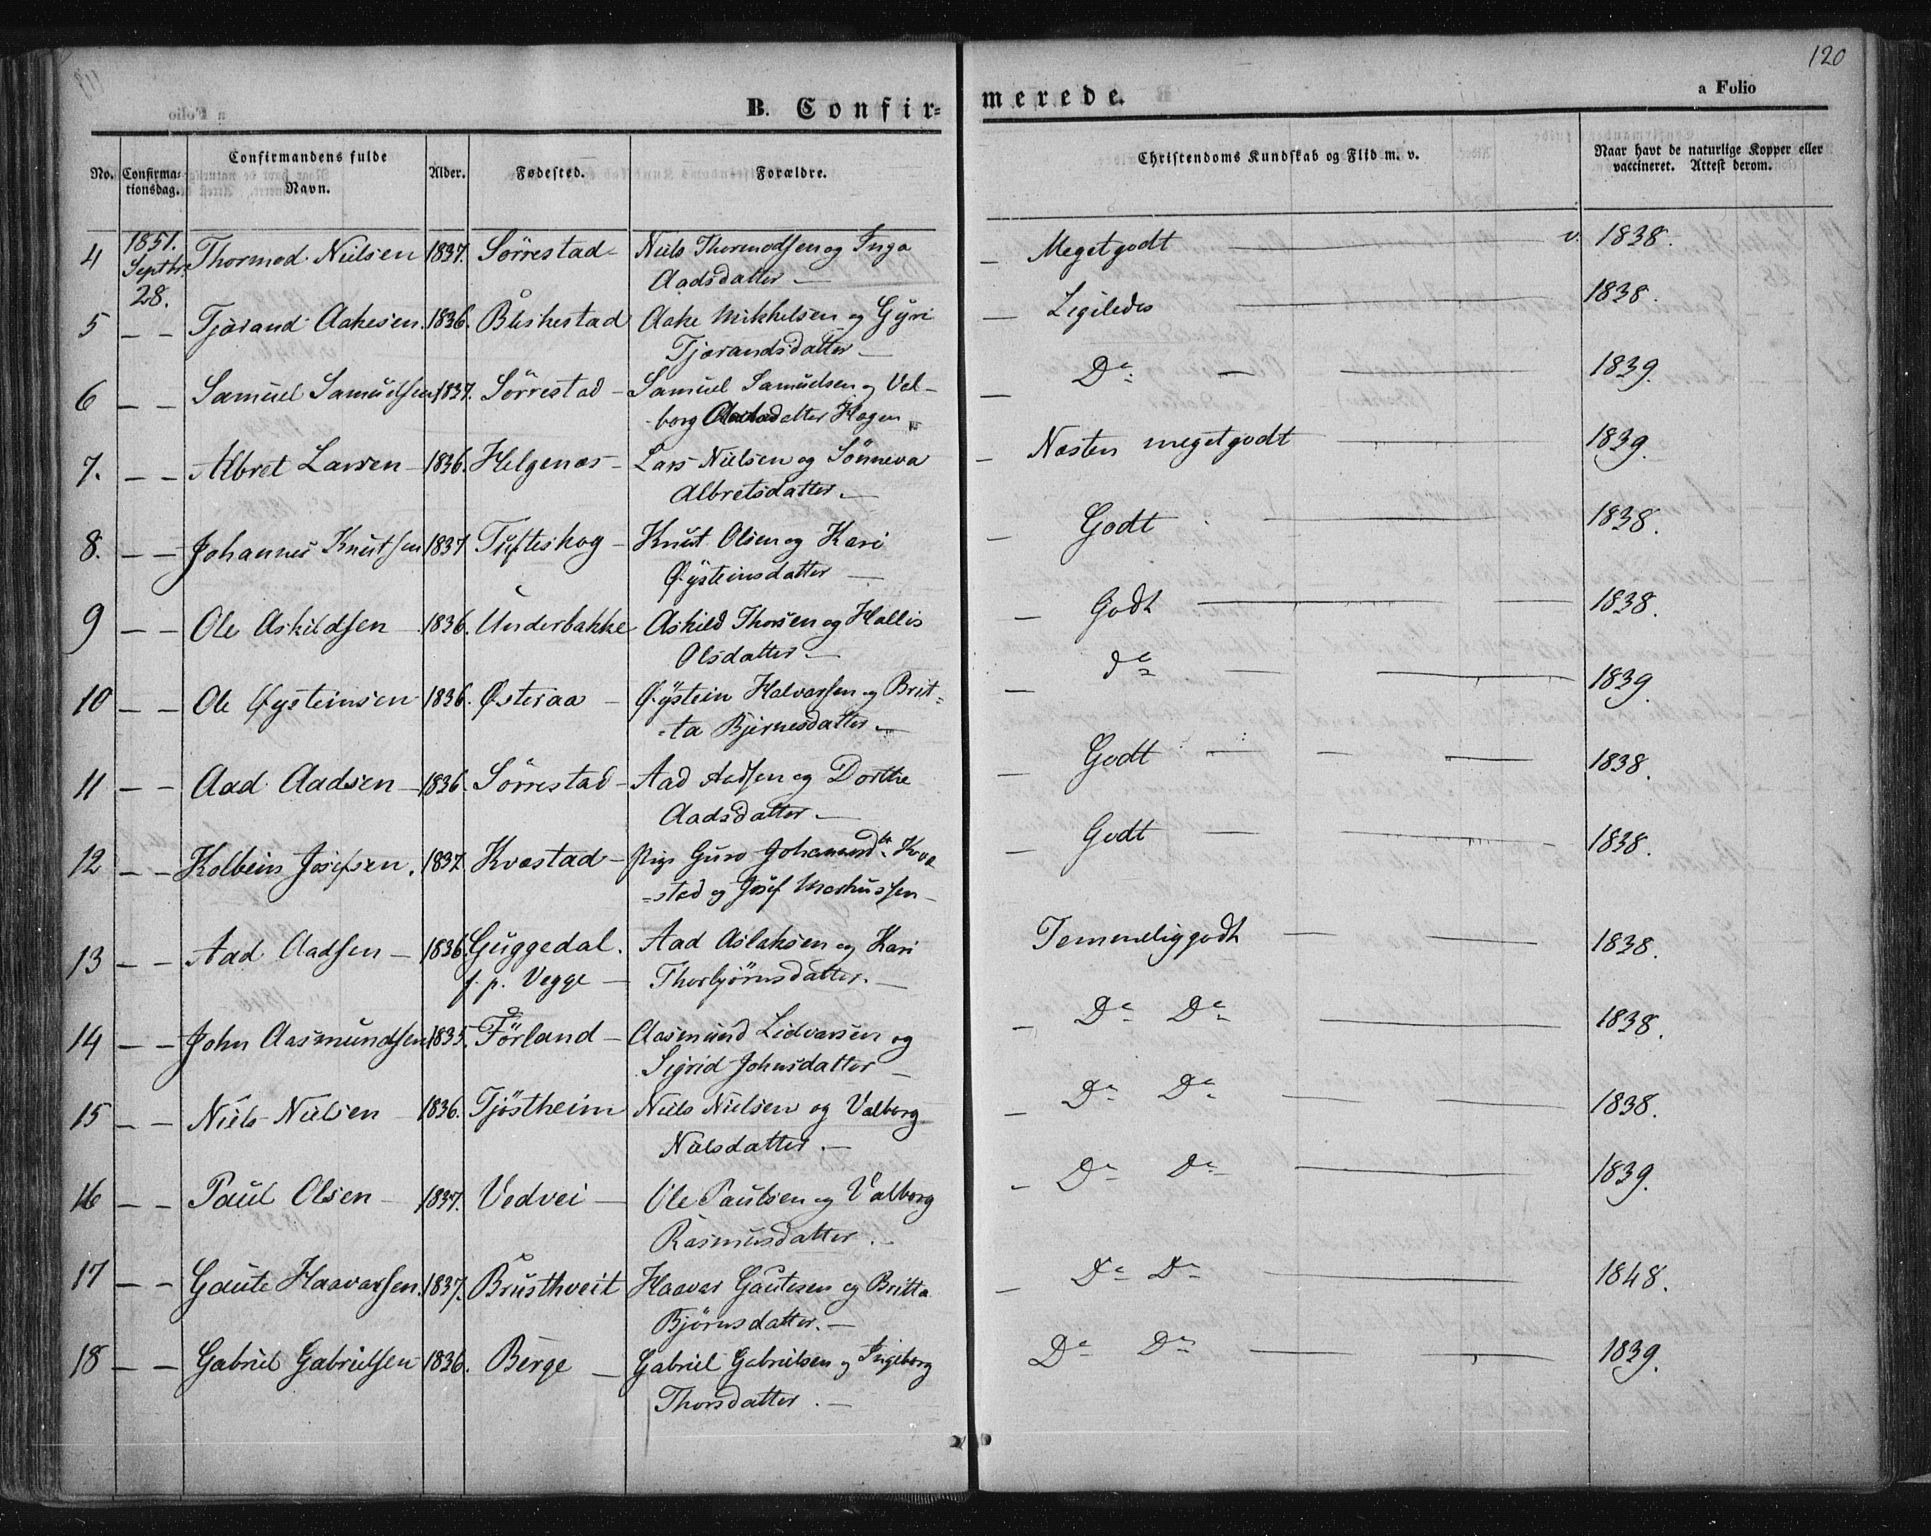 120
B. Confirmerede.
a Folio
No. Confirmationsdag. Confirmandens fulde Navn. Alder. Fødested. Forældre. Christendoms Kundskab og Flid m. v. Naar havt de naturlige Kopper eller vaccineret. Attest derom.
4 1851. Septbr. 28. Thormod Nielsen 1837. Sörrestad Niels Thormodsen og Inga Aadsdatter — Megetgodt v. 1838.
5 — — Tjørand Aakesen. 1836. Bleskestad Aake Mikkelsen og Gyri Tjørandsdatter — Ligeledes 1838.
6 — — Samuel Samuelsen 1837. Sörrestad Samuel Samuelsen og Valborg datter Hagen Do 1839.
7. — — Albret Larsen 1836. Helgenæs Lars Nielsen og Sönneva Albretsdatter. — Næsten megetgodt 1839.
8. — — Johannes Knutsen 1837 Tufteskog Knut Olsen og Kari Øysteinsdatter — Godt 1838.
9 — — Ole Askildsen 1836. Underbakke Askild Thorsen og Hallis Olsdatter — Godt 1838.
10 — — Ole Øysteinsen 1836. Østeraa Øystein Halvarsen og Britta Bjernesdatter — do 1839.
11 — — Aad Aadsen 1836. Sörrestad Aad Aadsen og Dorthe Aadsdatter — Godt 1838.
12 — — Kolbein Josefsen. 1837. Kvæstad Pige Guro Johannesdtr Kvæstad og Josef Markussen — Godt 1838.
13 — — Aad Aadsen — 1836. Guggedal. f. p. Vegge — Aad Aslaksen og Kari Thorbjörnsdatter. — Temmeliggodt 1838.
14 — — John Aasmundsen 1835. Förland Aasmund Lidvarsen og Sigrid Johnsdatter — Do Do 1838.
15 — — Niels Nielsen 1836. Tjöstheim Niels Nielsen og Valborg Nielsdatter. — Do Do 1838.
16 — — Paul Olsen 1837. Vedvei Ole Paulsen og Valborg Rasmusdatter. Do Do 1839.
17 — — Gaute Haavarsen. 1837. Brusthveit Haavar Gautesen og Britta Bjørnsdatter. — Do Do 1848.
18 — — Gabriel Gabrielsen 1836. Berge — Gabriel Gabrielsen og Ingeborg Thorsdatter. — Do Do 1839.